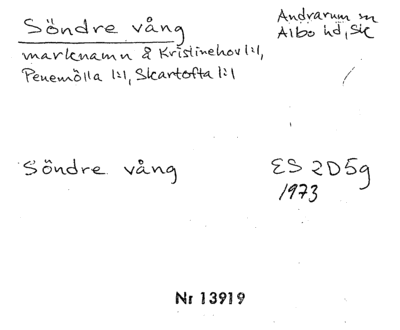 Söndre vång
Andrarum sn
Albo hd, Sk
marknamn å Kristinehov 1:1,
Penemölla 1:1, Skartofta 1:1
Söndre vång
ES 2D5g
1973
Nr 13919